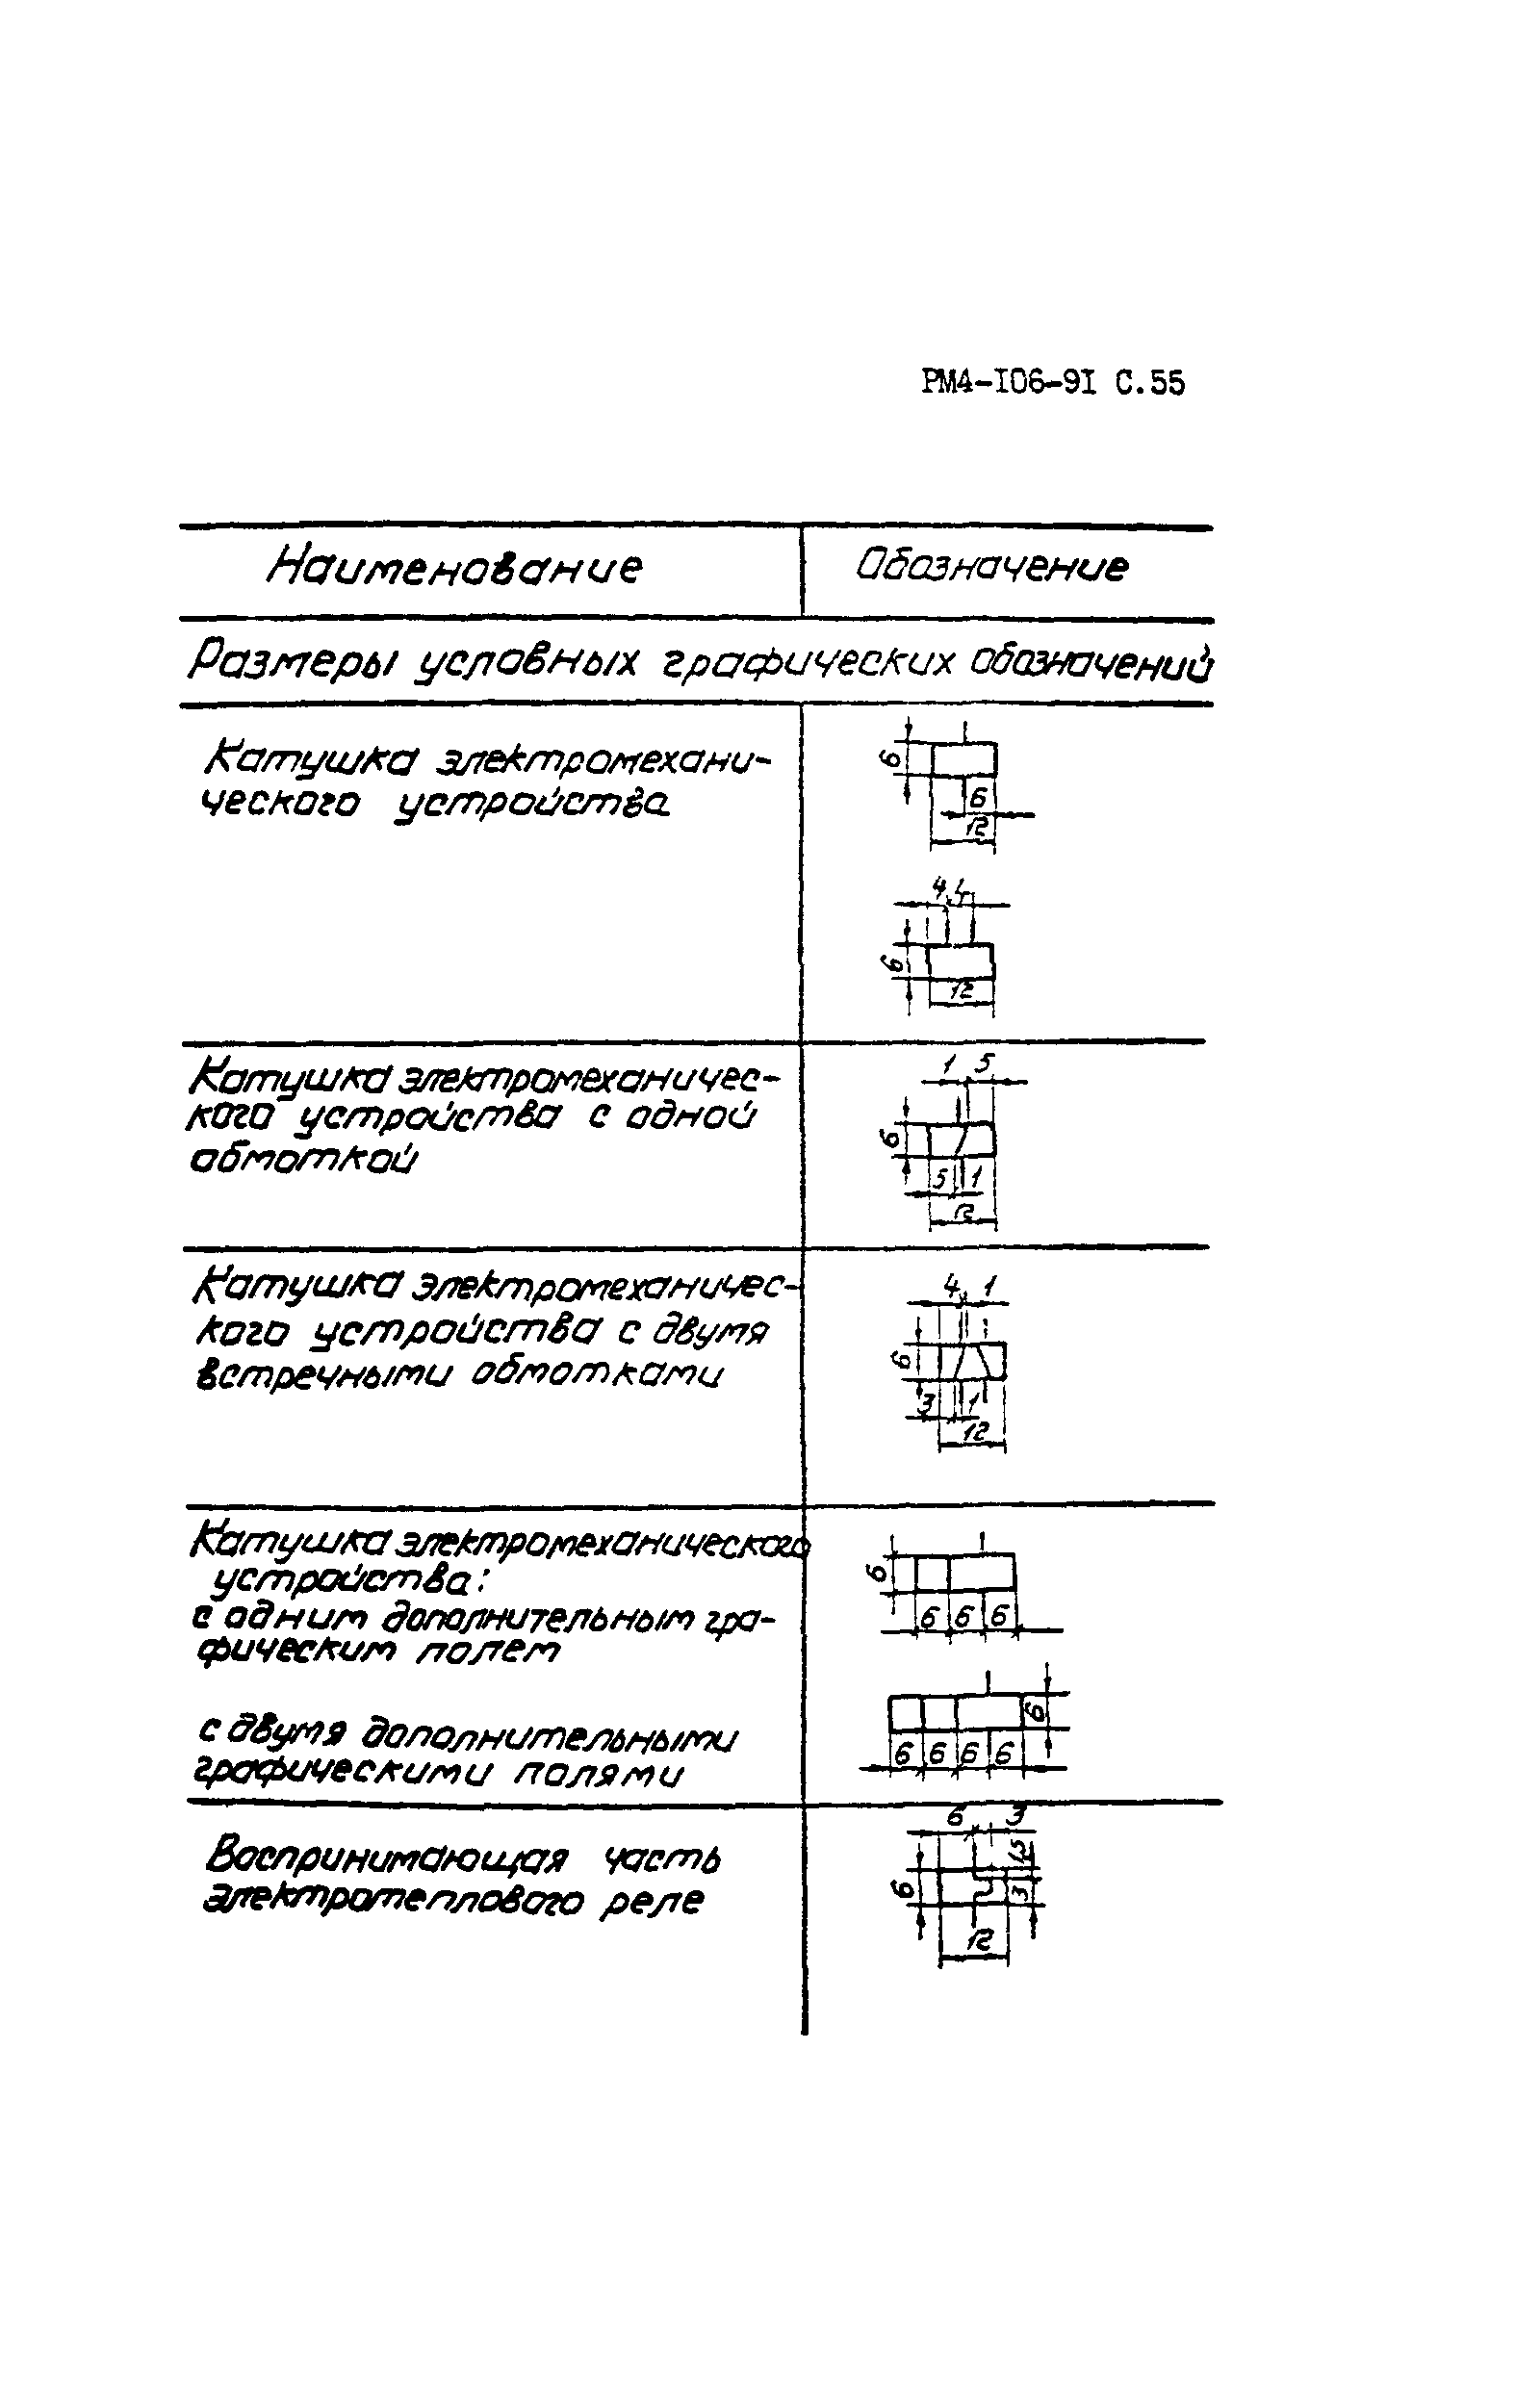 РМ4-I06-9I С.55
Наименование Обозначение
Размеры условных графических обозначений
Катушка электромехани-
ческого устройства
6
6
12
4 4
6
12
Катушка электромеханичес-
кого устройства с одной
обмоткой
1 5
6
5 1
12
Катушка электромеханичес-
кого устройства с двумя
встречными обмотками
4 1
6
3 1
12
Катушка электромеханического
устройства:
с одним дополнительным гра-
фическим полем
6
6 6 6
с двумя дополнительными
графическими полями
6
6 6 6 6
Воспринимающая часть
электротеплового реле
6 3
1,5
6
3
12